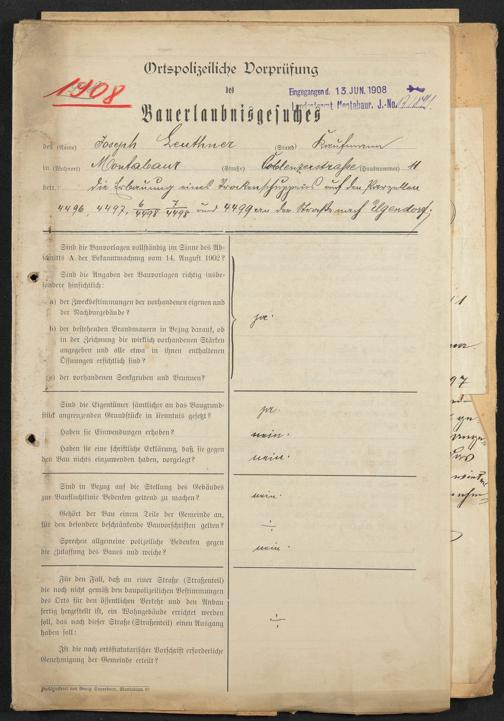 Ortspolizeiliche Vorprüfung
1908
des
Eingegangen d. 13. JUN. 1908
Landratsamt Montabaur. J.-No.
Bauerlaubnisgesuches
des (Name) Joseph Leuthner (Stand) Kaufmann
in (Wohnort) Montabaur (Straße) Coblenzerstraße (Hausnummer) 11
betr. die Erbauung eines Trockenschuppens auf den Parzellen
4496, 4497, 6/4498 7/4498 und 4499 an der Straße nach Elgendorf;
Sind die Bauvorlagen vollständig im Sinne des Ab-
schnitts A der Bekanntmachung vom 14. August 1902?
Sind die Angaben der Bauvorlagen richtig insbe-
sondere hinsichtlich:
a) der Zweckbestimmungen der vorhandenen eigenen und
der Nachbargebäude?
ja.
b) der bestehenden Brandmauern in Bezug darauf, ob
in der Zeichnung die wirklich vorhandenen Stärken
angegeben und alle etwa in ihnen enthaltenen
Öffnungen ersichtlich sind?
c) der vorhandenen Senkgruben und Brunnen?
Sind die Eigentümer sämtlicher an das Baugrund-
stück angrenzenden Grundstücke in Kenntnis gesetzt?
ja.
Haben sie Einwendungen erhoben?
nein.
Haben sie eine schriftliche Erklärung, daß sie gegen
den Bau nichts einzuwenden haben, vorgelegt?
nein.
Sind in Bezug auf die Stellung des Gebäudes
zur Baufluchtlinie Bedenken geltend zu machen?
nein.
Gehört der Bau einem Teile der Gemeinde an,
für den besondere beschränkende Bauvorschriften gelten?
Sprechen allgemeine polizeiliche Bedenken gegen
die Zulassung des Baues und welche?
nein.
Für den Fall, daß an einer Straße (Straßenteil)
die noch nicht gemäß den baupolizeilichen Bestimmungen
des Orts für den öffentlichen Verkehr und den Anbau
fertig hergestellt ist, ein Wohngebäude errichtet werden
soll, das nach dieser Straße (Straßenteil) einen Ausgang
haben soll:
Ist die nach ortsstatutarischer Vorschrift erforderliche
Genehmigung der Gemeinde erteilt?